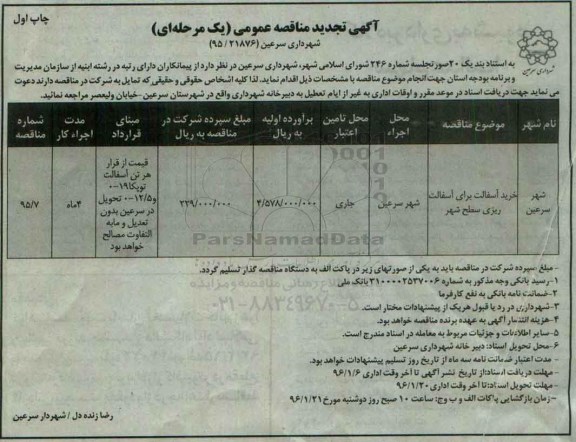 چاپ اول
آگهی تجدید مناقصه عمومی (یک مرحله‌ای)
شهرداری سرعین (۲۱۸۷۶/ ۹۵)
شهرداری سرعین
به استناد بند یک ۲۰صورتجلسه شماره ۲۴۶ شورای اسلامی شهر، شهرداری سرعین در نظر دارد از پیمانکاران دارای رتبه در رشته ابنیه از سازمان مدیریت
و برنامه بودجه استان جهت انجام موضوع مناقصه با مشخصات ذیل اقدام نماید. لذا کلیه اشخاص حقوقی و حقیقی که تمایل به شرکت در مناقصه دارند دعوت
می نماید جهت دریافت اسناد در موعد مقرر و اوقات اداری به غیر از ایام تعطیل به دبیرخانه شهرداری واقع در شهرستان سرعین -خیابان ولیعصر مراجعه نمائید.
نام شهر | موضوع مناقصه | محل اجراء | محل تامین اعتبار | برآورده اولیه به ریال | مبلغ سپرده شرکت در مناقصه به ریال | مبنای قرارداد | مدت اجراء کار | شماره مناقصه
شهر سرعین | خرید آسفالت برای آسفالت ریزی سطح شهر | شهر سرعین | جاری | ۴/۵۷۸/۰۰۰/۰۰۰ | ۲۲۹/۰۰۰/۰۰۰ | قیمت از قرار هر تن آسفالت توپکا۱۹-۰ و۱۲/۵-۰ تحویل در سرعین بدون تعدیل و مابه التفاوت مصالح خواهد بود | ۴ماه | ۹۵/۷
ParsNamadData
- مبلغ سپرده شرکت در مناقصه باید به یکی از صورتهای زیر در پاکت الف به دستگاه مناقصه گذار تسلیم گردد.
۱-رسید بانکی وجه مذکور به شماره ۳۱۰۰۰۰۲۵۳۷۰۰۶ بانک ملی
۲-ضمانت نامه بانکی به نفع کارفرما
۳-شهرداری در رد یا قبول هریک از پیشنهادات مختار است.
۴-هزینه انتشار آگهی به عهده برنده مناقصه خواهد بود.
۵-سایر اطلاعات و جزئیات مربوط به معامله در اسناد مندرج است.
۶-محل تحویل اسناد: دبیر خانه شهرداری سرعین
- مدت اعتبار ضمانت نامه سه ماه از تاریخ روز تسلیم پیشنهادات خواهد بود.
- مهلت دریافت اسناد:از تاریخ نشر آگهی تا آخر وقت اداری ۹۶/۱/۶
- مهلت تحویل اسناد:تا آخر وقت اداری ۹۶/۱/۲۰
- زمان بازگشایی پاکات الف و ب وج: ساعت ۱۰ صبح روز دوشنبه مورخ ۹۶/۱/۲۱
رضا زنده دل / شهردار سرعین